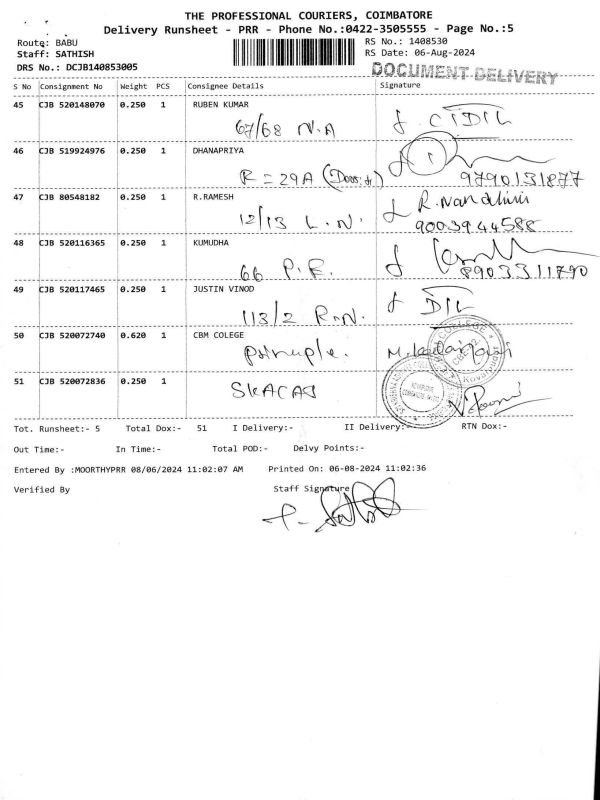 THE PROFESSIONAL COURIERS, COIMBATORE
Delivery Runsheet - PRR - Phone No.:0422-3505555 - Page No.:5
Route: BABU
Staff: SATHISH
DRS No.: DCJB140853005
RS No.: 1408530
RS Date: 06-Aug-2024
DOCUMENT DELIVERY
S No Consignment No Weight PCS Consignee Details Signature
45 CJB 520148070 0.250 1 RUBEN KUMAR
67/68 N.A
46 CJB 519924976 0.250 1 DHANAPRIYA
R = 29A
9790131877
47 CJB 80548182 0.250 1 R.RAMESH R. Nandhini
12/13 L.N. 9003944588
48 CJB 520116365 0.250 1 KUMUDHA
66 P.R. 8903311790
49 CJB 520117465 0.250 1 JUSTIN VINOD
113/2 R.N.
50 CJB 520072740 0.620 1 CBM COLEGE
51 CJB 520072836 0.250 1
SKACAS
Tot. Runsheet:- 5 Total Dox:- 51 I Delivery:- II Delivery:- RTN Dox:-
Out Time:- In Time:- Total POD:- Delvy Points:-
Entered By :MOORTHYPRR 08/06/2024 11:02:07 AM Printed On: 06-08-2024 11:02:36
Verified By Staff Signature